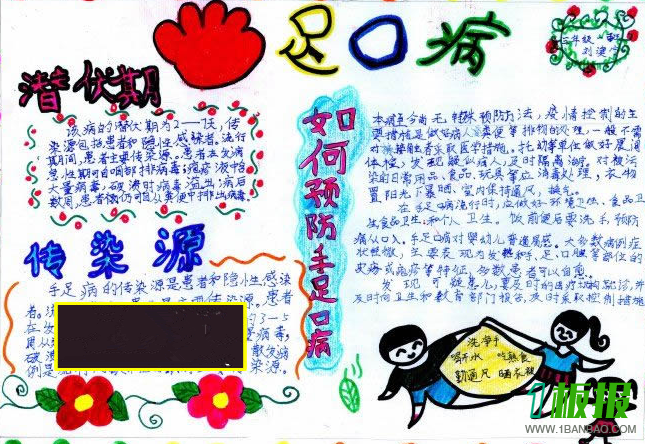 足口病
三年级
潜伏期
该病的潜伏期为2——7天,传
染源包括患者和隐性感染者。流行
期间,患者主要传染源。患者在发病
急性期可自咽部排病毒;疱疹液中含
大量病毒,破溃时病毒溢出;病后
数周,患者仍可自从粪便中排出病毒。
传染源
手足病的传染源是患者和隐性感染
者。流
主要传染源。患者
在发
的3—5
周从
病毒,
破溃
散发病
例是
染源。
如何预防手足口病
本病至今尚无特殊预防方法,疫情控制的主
要措施是做好病人粪便等排物的处理,一般不需
对接触者采取医学措施。托幼单位做好晨间
体检,发现疑似病人,及时隔离治疗。对被污
染的日常用品、食品、玩具等应消毒处理,衣物
置阳光下暴晒,室内保持通风,换气。
在手足口病流行时,应做好环境卫生、食品卫
生和个人卫生。饭前便后要洗手,预防
病从口入。手足口病对婴幼儿普遍易感。大多数病例症
状轻微,主要表现为发热和手、足、口腔等部位的
皮疹或疱疹等特征,多数患者可以自愈。
发现可疑患儿,要及时到医疗机构就诊,并
及时向卫生和教育部门报告,及时采取控制措施
洗净手
喝开水 吃熟食
勤通风 晒衣被
1板报
WWW.1BANBAO.COM